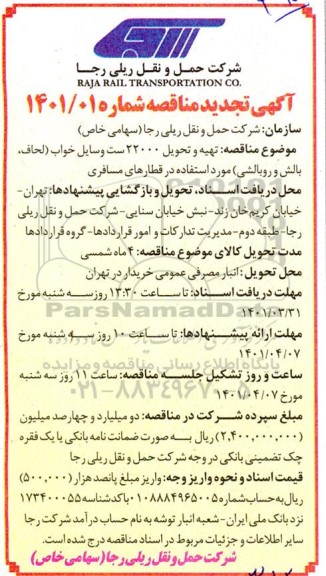 شرکت حمل و نقل ریلی رجا
RAJA RAIL TRANSPORTATION CO.
آگهی تجدید مناقصه شماره ۱۴۰۱/۰۱
سازمان: شرکت حمل و نقل ریلی رجا (سهامی خاص)
موضوع مناقصه: تهیه و تحویل ۲۲۰۰۰ ست وسایل خواب (لحاف،
بالش و روبالشی) مورد استفاده در قطارهای مسافری
محل دریافت اسناد، تحویل و بازگشایی پیشنهادها: تهران-
خیابان کریم خان زند- نبش خیابان سنایی- شرکت حمل و نقل ریلی
رجا- طبقه دوم- مدیریت تدارکات و امور قراردادها- گروه قراردادها
مدت تحویل کالای موضوع مناقصه: ۴ ماه شمسی
محل تحویل: انبار مصرفی عمومی خریدار در تهران
مهلت دریافت اسناد: تا ساعت ۱۳:۳۰ روز سه شنبه مورخ
۱۴۰۱/۰۳/۳۱
مهلت ارائه پیشنهادها: تا ساعت ۱۰ روز سه شنبه مورخ
۱۴۰۱/۰۴/۰۷
ساعت و روز تشکیل جلسه مناقصه: ساعت ۱۱ روز سه شنبه
مورخ ۱۴۰۱/۰۴/۰۷
مبلغ سپرده شرکت در مناقصه: دو میلیارد و چهارصد میلیون
(۲,۴۰۰,۰۰۰,۰۰۰) ریال به صورت ضمانت نامه بانکی یا یک فقره
چک تضمینی بانکی در وجه شرکت حمل و نقل ریلی رجا
قیمت اسناد و نحوه واریز وجه: واریز مبلغ پانصد هزار (۵۰۰,۰۰۰)
ریال به حساب شماره ۰۱۰۸۸۸۴۹۶۵۰۰۵ با کد شناسه ۱۷۳۴۰۰۵۵
نزد بانک ملی ایران- شعبه انبار توشه به نام حساب درآمد شرکت رجا
سایر اطلاعات و جزئیات مربوط در اسناد مناقصه درج شده است.
شرکت حمل و نقل ریلی رجا (سهامی خاص)
ParsNamadData
پایگاه اطلاع رسانی مناقصه و مزایده
۰۲۱-۸۸۳۴۹۶۷۰-۵